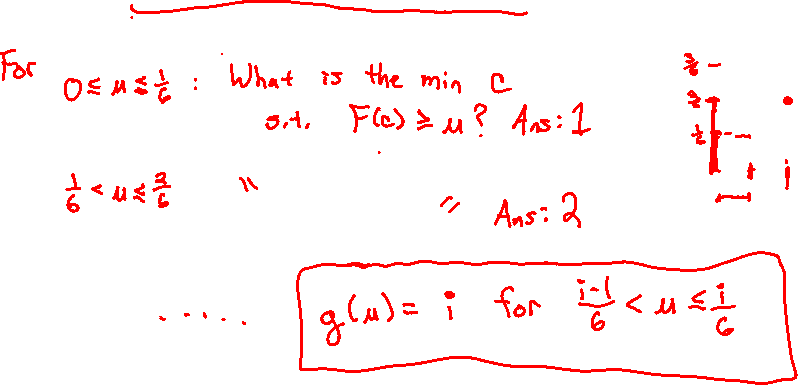 For
0 ≤ u ≤ 1/6 : What is the min c
s.t. F(c) ≥ u? Ans: 1
1/6 < u ≤ 2/6 " " Ans: 2
..... g(u) = i for (i-1)/6 < u ≤ i/6